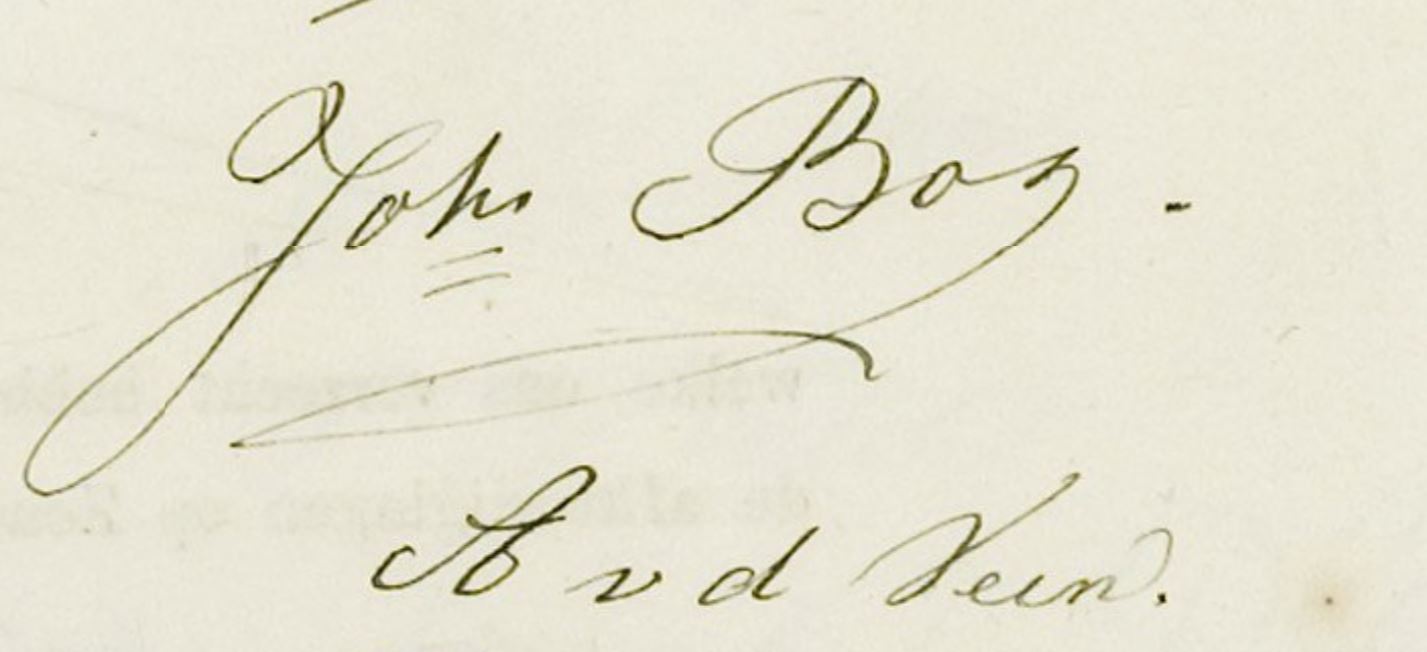 Joh Bos.
A v d Veen.